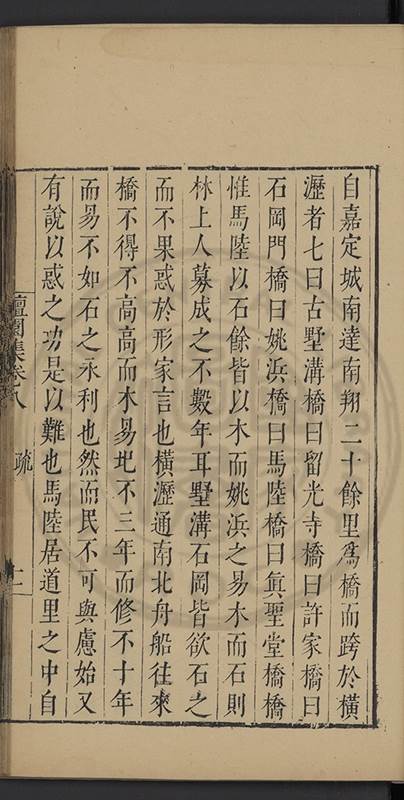 自嘉定城南達南翔二十餘里爲橋而跨於橫
瀝者七曰古墅溝橋曰留光寺橋曰許家橋曰
石岡門橋曰姚浜橋曰馬陸橋曰眞聖堂橋橋
惟馬陸以石餘皆以木而姚浜之易木而石則
林上人募成之不數年耳墅溝石岡皆欲石之
而不果惑於形家言也橫瀝通南北舟船往來
橋不得不高高而木易圯不三年而修不十年
而易不如石之永利也然而民不可與慮始又
有說以惑之功是以難也馬陸居道里之中自
檀園集卷八
疏
二